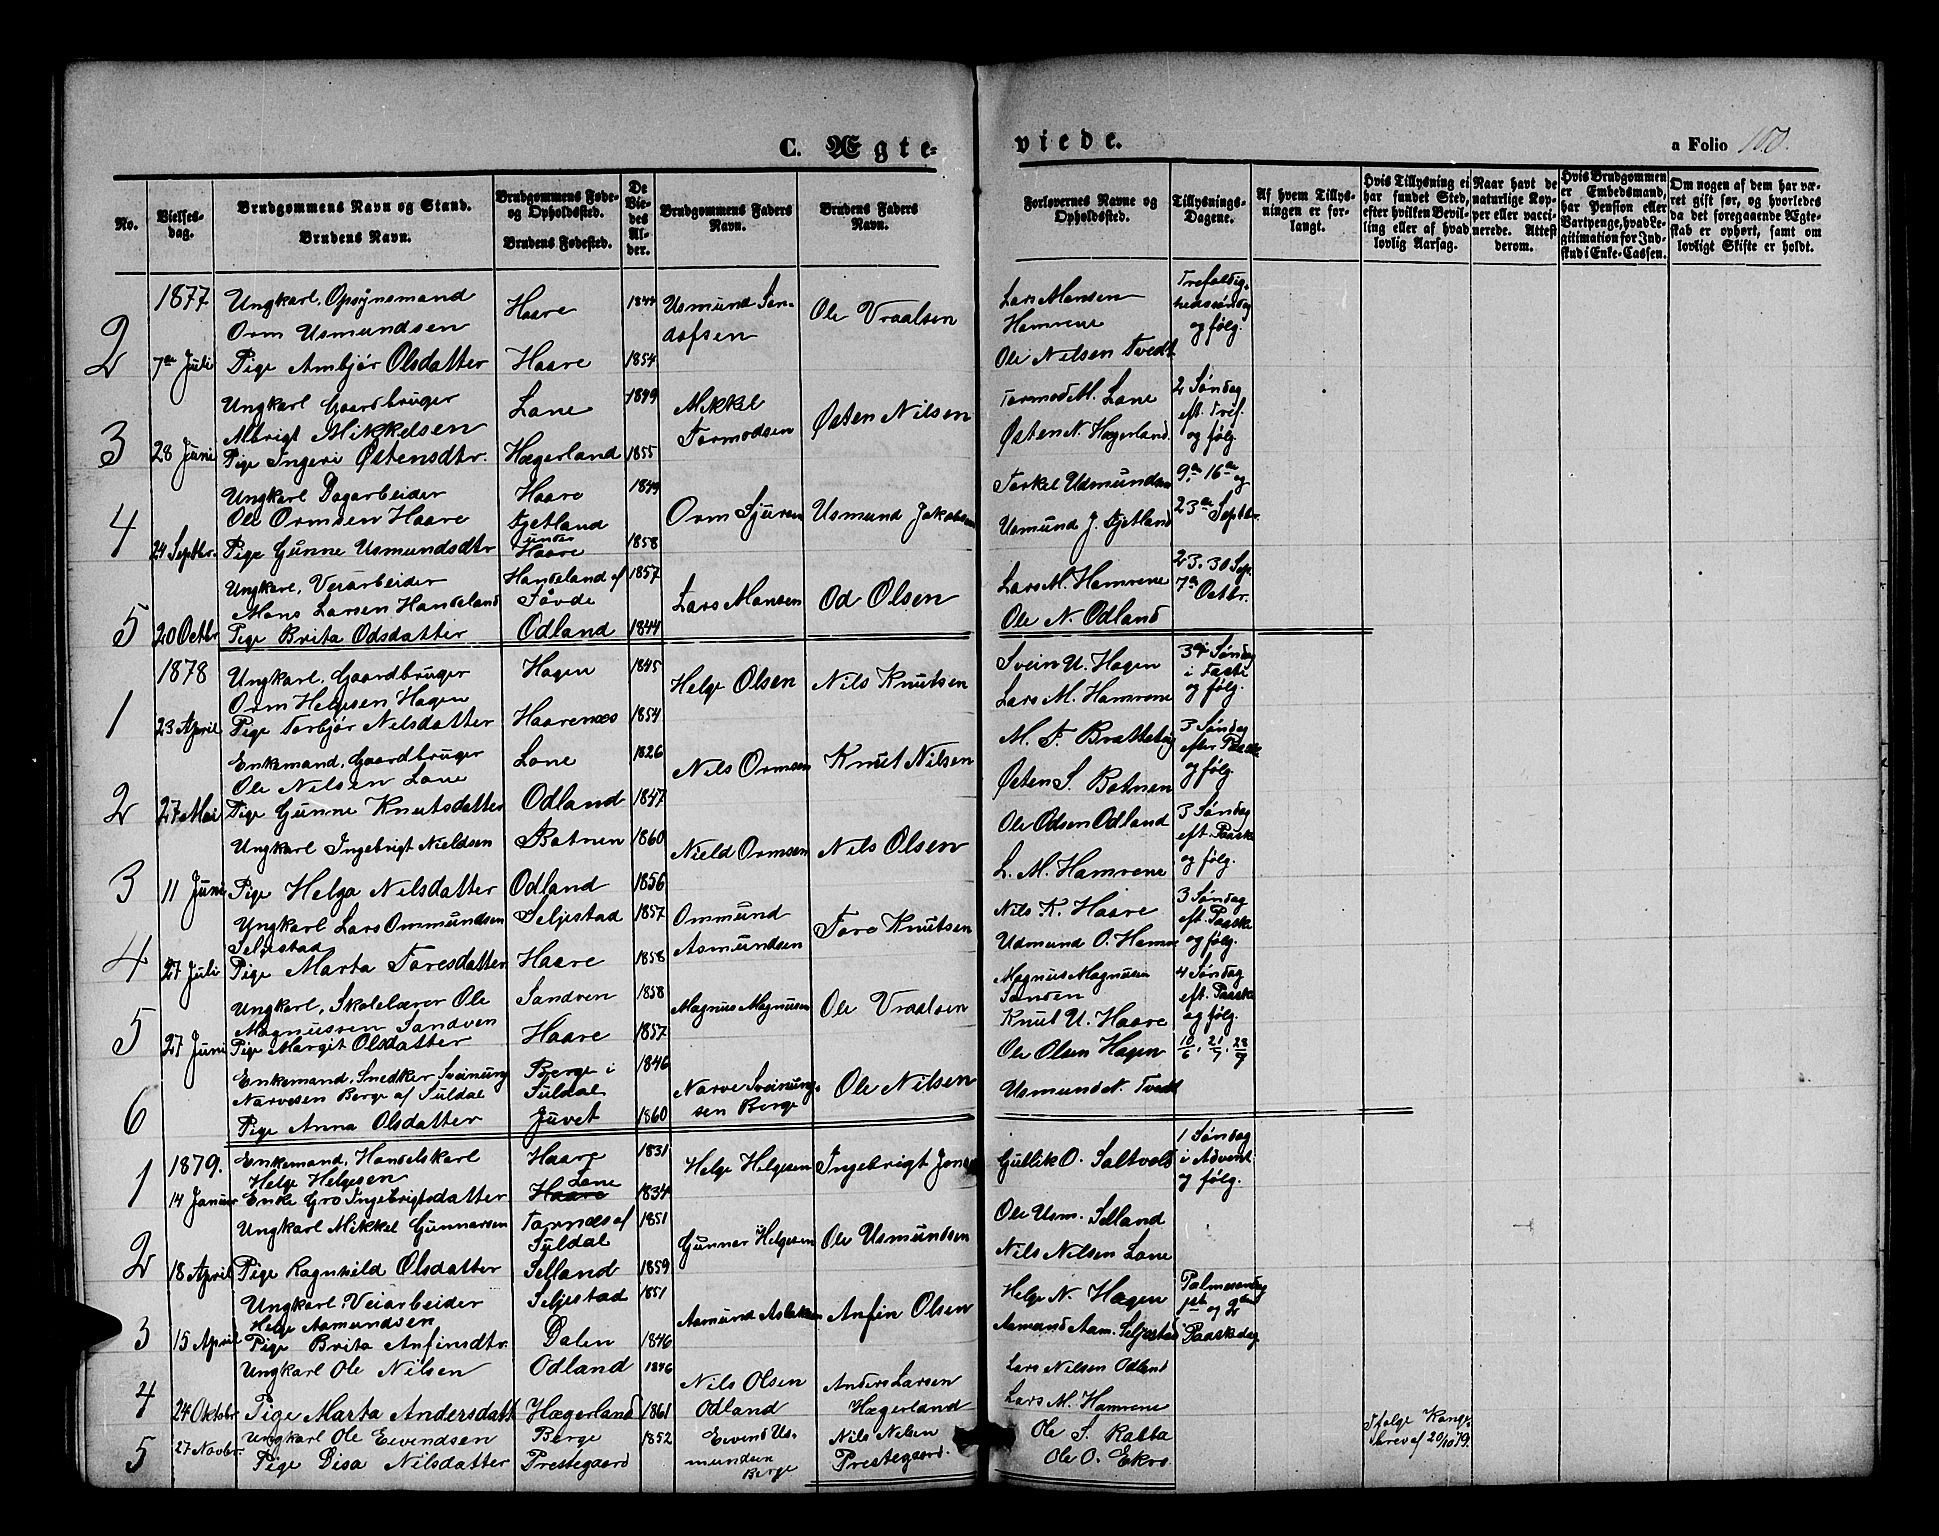 C. Ægte-
viede.
a Folio 100.
No.
Vielses-
dag.
Brudgommens Navn og Stand.
Brudens Navn.
Brudgommens Føde-
og Opholdssted.
Brudens Fødested.
De
Vie-
des
Al-
der.
Brudgommens Faders
Navn.
Brudens Faders
Navn.
Forlovernes Navne og
Opholdssted.
Tillysnings-
Dagene.
Af hvem Tillys-
ningen er for-
langt.
Hvis Tillysning ei
har fundet Sted,
efter hvilken Bevil-
ling eller af hvad
lovlig Aarsag.
Naar havt de
naturlige Kop-
per eller vacci-
nerede. Attest
derom.
Hvis Brudgommen
er Embedsmand,
har Pension eller
Vartpenge, hvad Le-
gitimation for Ind-
skud i Enke-Cassen.
Om nogen af dem har væ-
ret gift før, og hvorledes
da det foregaaende Ægte-
skab er ophørt, samt om
lovligt Skifte er holdt.
1877
2
7de Juli
Ungkarl, Opsynsmand
Orm Usmundsen
Pige Ambjør Olsdatter
Haare
Haare
1844
1854
Usmund Son-
dofsen
Ole Vraalsen
Lars Monsen
Hamrene
Ole Nilsen Tvedt
Trefoldig-
hedssøndag
og følg.
3
28 Juni
Ungkarl Gaardbruger
Albrigt Mikkelsen
Pige Ingeri Østensdtr.
Lone
Hægerland
1849
1855
Mikkel
Tormodsen
Østen Nilsen
Tormod M. Lone
Østen N. Hægerland
2 Søndag
eft. Tref.
og følg.
4
24 Septbr.
Ungkarl Dagarbeider
Ole Ormsen Haare
Pige Gunne Usmundsdtr
Haare
Fjetland
under
Haare
1849
1858
Orm Sjursen
Usmund Jakobsen
Torkel Udmundsen
Usmund J. Fjetland
9de 16de og
23de Septbr.
5
20 Octbr
Ungkarl, Veiarbeider
Mons Larsen Handeland
Pige Brita Odsdatter
Handeland af
Søvde
Odland
1857
1844
Lars Monsen
Od Olsen
Lars M. Hamrene
Ole N. Odland
23. 30 Sep.
7de Octbr.
1878
1
23 April
Ungkarl, Gaardbruger
Orm Helgesen Hagen
Pige Torbjør Nilsdatter
Hagen
Haarenæs
1845
1854
Helge Olsen
Nils Knutsen
Svein U. Hagen
Lars M. Hamrene
3die Søndag
i Faste
og følg.
2
27 Mai
Enkemand, Gaardbruger
Ole Nilsen Lone
Pige Gunne Knutsdatter
Lone
Odland
1826
1847
Nils Ormsen
Knut Nilsen
M. T. Brattebø
Østen S. Botnen
3 Søndag
efter Paaske
og følg.
3
11 Juni
Ungkarl Ingebrigt Nieldsen
Pige Helga Nilsdatter
Botnen
Odland
1860
1856
Nield Ormsen
Nils Olsen
Ole Odsen Odland
L. M. Hamrene
3 Søndag
eft. Paaske
og følg.
4
27 Juli
Ungkarl Lars Ommundsen
Seljestad
Pige Marta Toresdatter
Seljestad
Haare
1857
1858
Ommund
Asmundsen
Tore Knutsen
Nils K. Haare
Udmund O. Hamre
3 Søndag
eft. Paaske
og følg.
5
27 Juni
Ungkarl, Skolelærer Ole
Magnussen Sandven
Pige Margit Olsdatter
Sandven
Haare
1858
1857
Magnus Magnusen
Ole Vraalsen
Magnus Magnusen
Sanden
Knut U. Haare
4 Søndag
eft. Paaske
og følg.
6
Enkemand, Snedker Sveinung
Narvesen Berge af Suldal
Pige Anna Olsdatter
Berge i
Suldal
Juvet
1846
1860
Narve Sveinung-
sen Berge
Ole Nilsen
Ole Olsen Hagen
Usmund N. Tvedt
10/6, 21/7, 28/7
1879.
1
14 Januar
Enkemand, Handelskarl
Helge Helgesen
Enke Gro Ingebrigtsdatter
Haare
Lone
Haare
1831
1834
Helge Helgesen
Ingebrigt Jons
Gullik O. Saltvold
1 Søndag
i Advent
og følg.
2
18 April
Ungkarl Mikkel Gunnarsen
Pige Ragnhild Olsdatter
Tornæs af
Suldal
Selland
1851
1859
Gunnar Helgesen
Ole Usmundsen
Ole Usm. Selland
Nils Nilsen Lone
3
15 April
Ungkarl, Veiarbeider
Helge Asmundsen
Pige Brita Anfinsdtr.
Seljestad
Dalen
1851
1846
Asmund Aslaksen
Anfin Olsen
Helge N. Hagen
Asmund Asm. Seljestad
Palmesøndag
1ste og 2den
Paaskdag
4
24 Oktobr
Ungkarl Ole Nilsen
Pige Marta Andersdatt
Odland
Hægerland
1846
1861
Nils Olsen
Odland
Anders Larsen
Hægerland
Lars Nilsen Odland
Lars M. Hamrene
5
27 Novbr.
Ungkarl Ole Eivendsen
Pige Disa Nilsdatter
Berge
Prestegaard
1852
Eivend Us-
mundsen
Berge
Nils Nilsen
Prestegaard.
Ole S. Rabba
Ole O. Ekre
Ifølge Konge-
brev af 20/10 79.